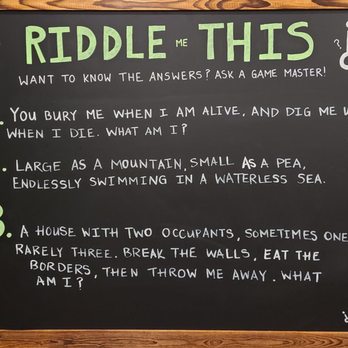 RIDDLE ME THIS
?
WANT TO KNOW THE ANSWERS? ASK A GAME MASTER!
. YOU BURY ME WHEN I AM ALIVE, AND DIG ME
WHEN I DIE. WHAT AM I?
. LARGE AS A MOUNTAIN, SMALL AS A PEA,
ENDLESSLY SWIMMING IN A WATERLESS SEA.
3. A HOUSE WITH TWO OCCUPANTS, SOMETIMES ONE
RARELY THREE. BREAK THE WALLS, EAT THE
BORDERS, THEN THROW ME AWAY. WHAT
AM I?